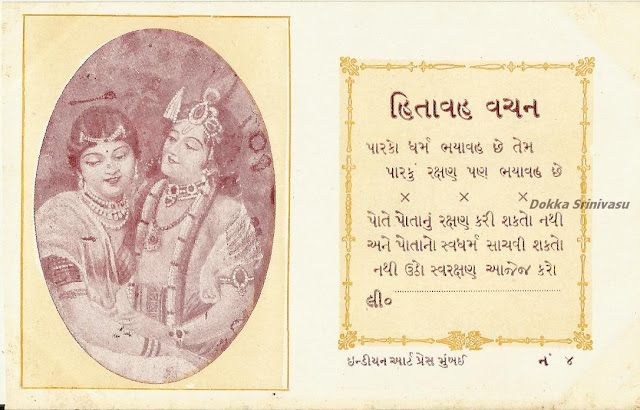 હિતાવહ વચન
પારકો ધર્મ ભયાવહ છે તેમ
પારકું રક્ષણ પણ ભયાવહ છે
× × ×
Dokka Srinivasu
પોતે પોતાનું રક્ષણ કરી શકતો નથી
અને પોતાનો સ્વધર્મ સાચવી શકતો
નથી ઉઠો સ્વરક્ષણ આજેજ કરો
લી૦
ઇન્ડીયન આર્ટ પ્રેસ મુંબઈ નં ૪